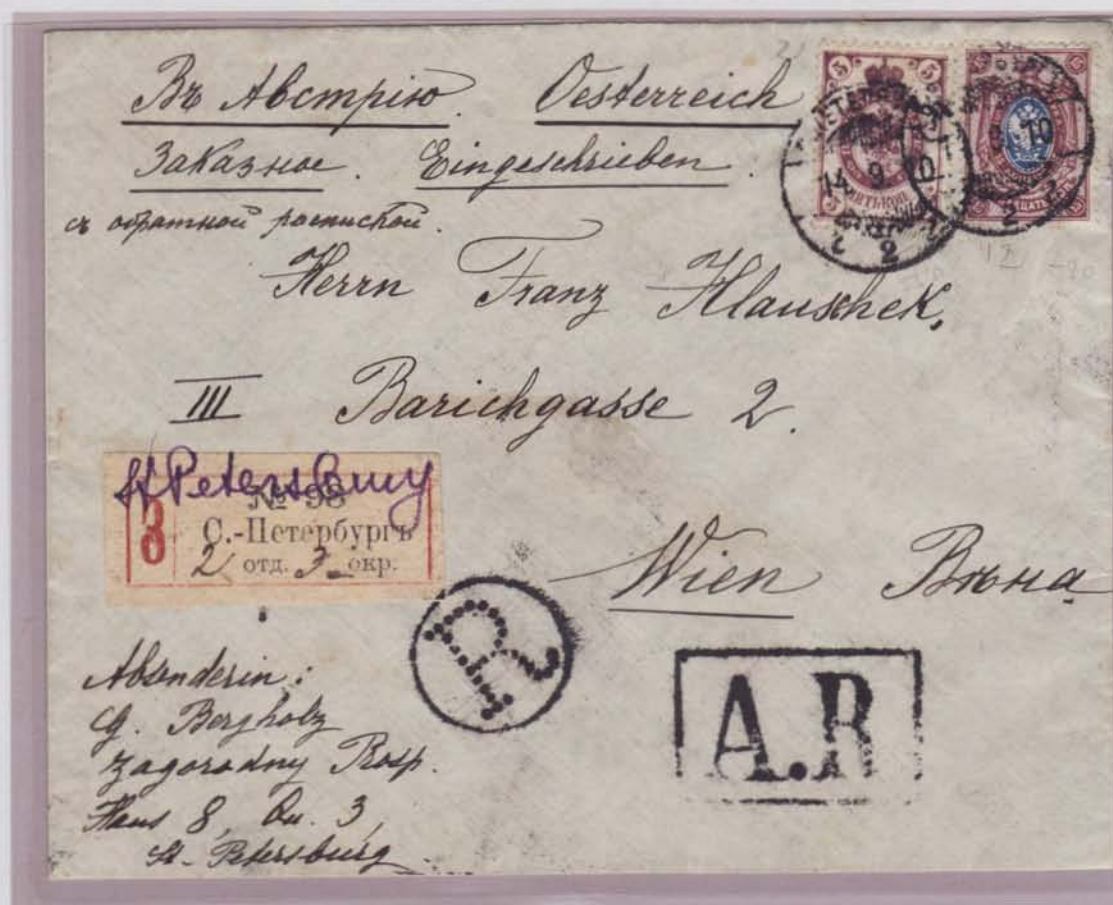 Въ Австрію. Oesterreich
Заказное. Eingeschrieben.
съ обратной роспиской.
Herrn Franz Hlauschek,
III Barichgasse 2.
Wien Вѣна
St Petersburg
№ 98
З
С.-Петербургъ
2 отд. 3 окр.
R
A.R
Absenderin:
G. Bergholz
Zagorodny Prosp.
Haus 8, Qu. 3,
St. Petersburg.
5 5
14 9 10
2 2
2